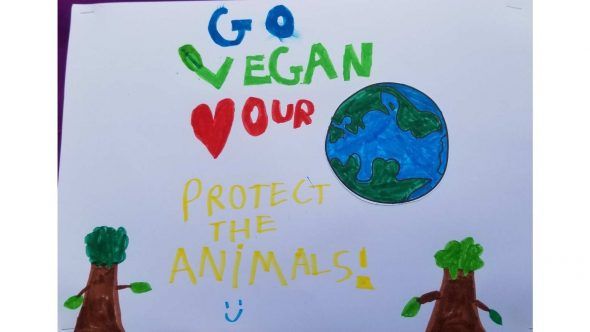 GO
VEGAN
OUR
PROTECT
THE
ANIMALS!